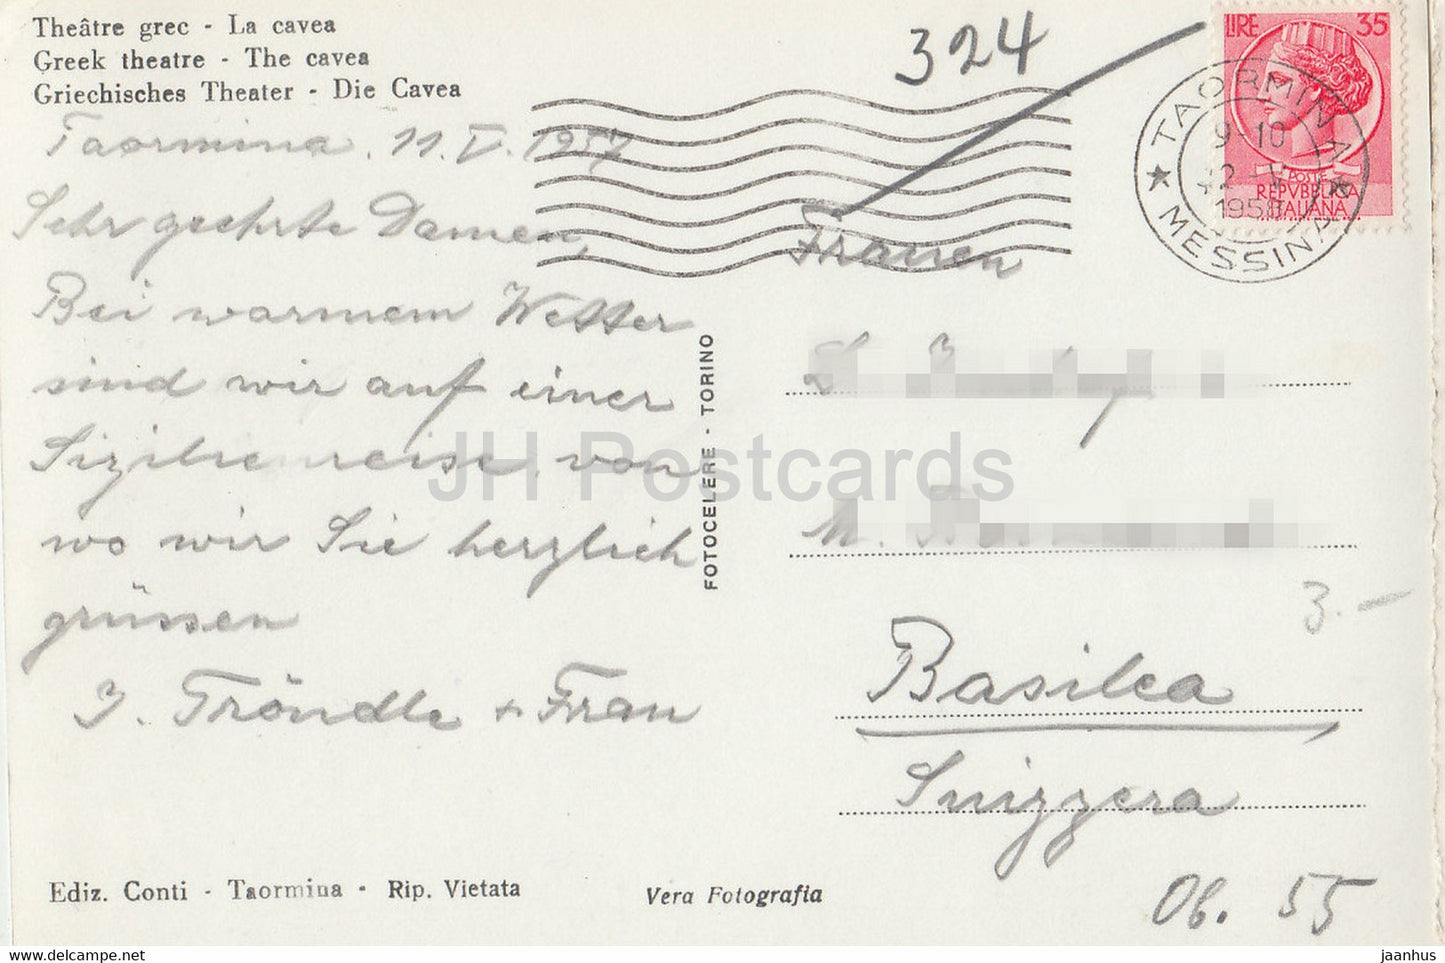 Theâtre grec - La cavea
Greek theatre - The cavea
Griechisches Theater - Die Cavea
324
LIRE 35
POSTE
REPVBBLICA
ITALIANA
TAORMINA
9-10
MESSINA
Taormina, 11. V. 1957
Sehr geehrte Damen,
Bei warmem Wetter
sind wir auf einer
Sizilienreise, von
wo wir Sie herzlich
grüssen
J. Tröndle + Frau
FOTOCELERE - TORINO
Frauen
Basilea
Svizzera
3.-
Ob. 55
Ediz. Conti - Taormina - Rip. Vietata
Vera Fotografia
JH Postcards
www.delcampe.net
jaanhus